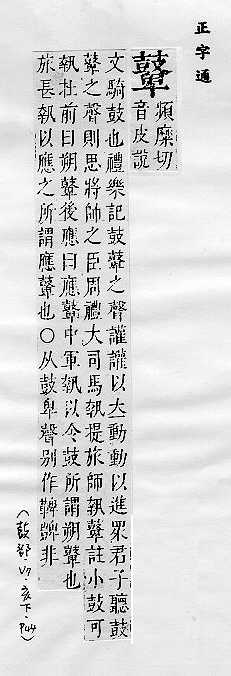 正字通
鼙 頻糜切
音皮說
文騎鼓也禮樂記鼓鼙之聲讙讙以立動動以進眾君子聽鼓
鼙之聲則思將帥之臣周禮大司馬執提旅師執鼙註小鼓可
執扗前曰朔鼙後應曰應鼙中軍執以令鼓所謂朔鼙也
旅長執以應之所謂應鼙也○从鼓卑聲別作鞞𪔎非
(鼓部.